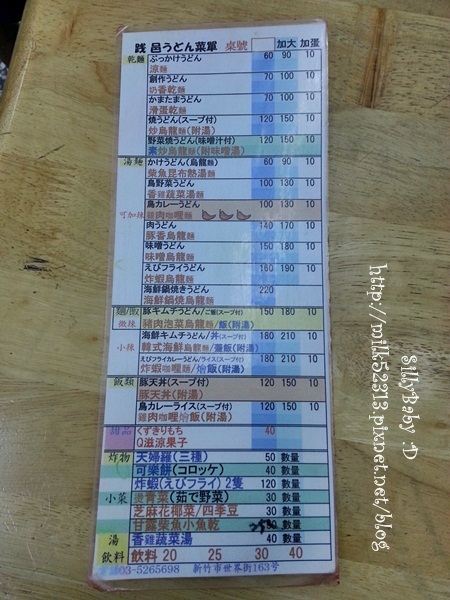 践 邑うどん菜單 桌號 加大 加蛋
乾麵 ぶっかけうどん 60 90 10
涼麵
創作うどん 70 100 10
奶香乾麵
かまたまうどん 70 100 10
滑蛋乾麵
焼うどん(スープ付) 120 150 10
炒烏龍麵(附湯)
野菜焼うどん(味噌汁付) 120 150 10
素炒烏龍麵(附味噌湯)
湯麵 かけうどん(烏龍麵) 60 90 10
柴魚昆布熱湯麵
鳥野菜うどん 100 130 10
香雞蔬菜湯麵
鳥カレーうどん 100 130 10
可加辣 雞肉咖哩麵
肉うどん 140 170 10
豚香烏龍麵
味噌うどん 150 180 10
味噌烏龍麵
えびフライうどん 160 190 10
炸蝦烏龍麵
海鮮鍋焼きうどん 220
海鮮鍋燒烏龍麵
麵/飯 豚キムチうどん/ご飯(スープ付) 150 180 10
微辣 豬肉泡菜烏龍麵/飯(附湯)
海鮮キムチうどん/丼(スープ付) 180 210 10
小辣 韓式海鮮烏龍麵/蓋飯(附湯)
えびフライカレーうどん/ライス(スープ付) 180 210 10
炸蝦咖哩麵/燴飯(附湯)
飯類 豚天丼(スープ付) 120 150 10
豚天丼(附湯)
鳥カレーライス(スープ付) 120 150 10
雞肉咖哩燴飯(附湯)
甜品 くずきりもち 40
Q滋涼果子
炸物 天婦羅(三種) 50 數量
可樂餅(コロッケ) 40 數量
炸蝦(えびフライ) 2隻 120 數量
小菜 燙青菜(茹で野菜) 30 數量
芝麻花椰菜/四季豆 30 數量
甘露柴魚小魚乾 數量
湯 香雞蔬菜湯 40 數量
飲料 飲料 20 25 30 40
03-5265698 新竹市世界街163号
SillyBaby :D
http://milk52313.pixnet.net/blog